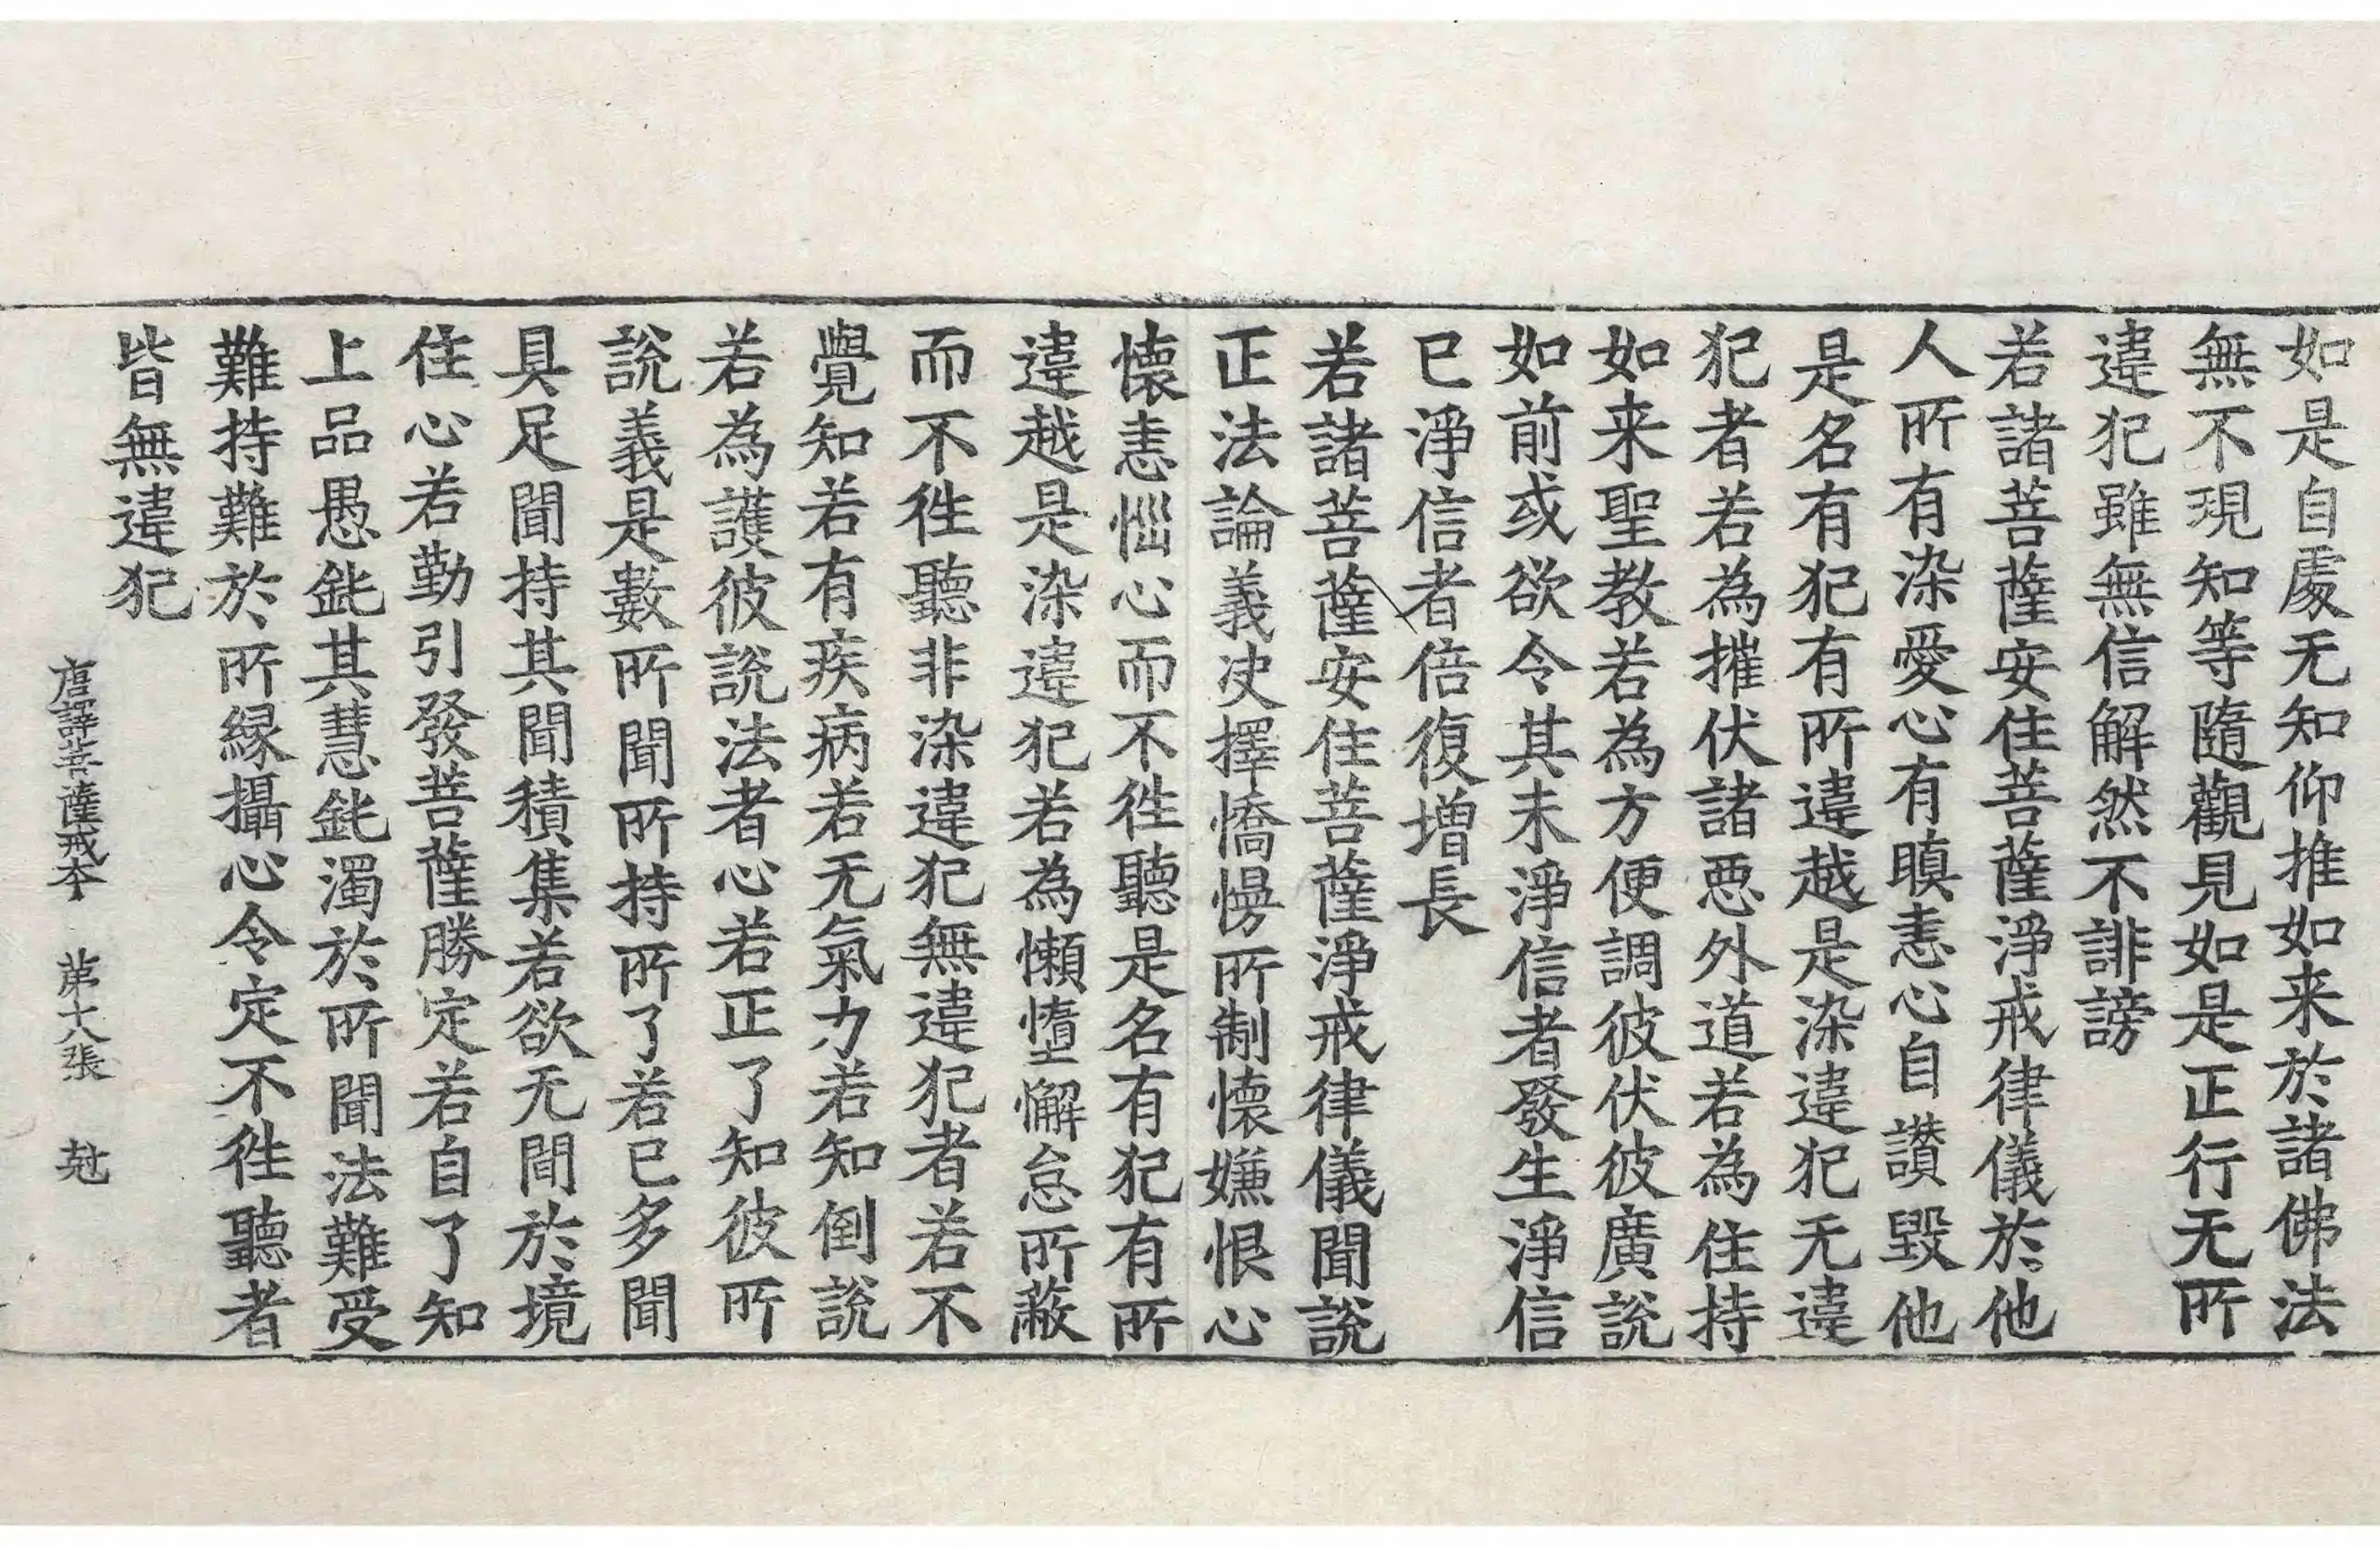 如是自處无知仰推如来於諸佛法
無不現知等隨觀見如是正行无所
違犯雖無信解然不誹謗
若諸菩薩安住菩薩淨戒律儀於他
人所有染愛心有瞋恚心自讃毀他
是名有犯有所違越是染違犯无違
犯者若為摧伏諸惡外道若為住持
如来聖教若為方便調彼伏彼廣說
如前或欲令其未淨信者發生淨信
已淨信者倍復增長
若諸菩薩安住菩薩淨戒律儀聞說
正法論義决擇憍慢所制懷嫌恨心
懷恚惱心而不徃聽是名有犯有所
違越是染違犯若為懶惰懈怠所蔽
而不徃聽非染違犯無違犯者若不
覺知若有疾病若无氣力若知倒說
若為護彼說法者心若正了知彼所
說義是數所聞所持所了若已多聞
具足聞持其聞積集若欲无間於境
住心若勤引發菩薩勝定若自了知
上品愚鈍其慧鈍濁於所聞法難受
難持難於所縁攝心令定不徃聽者
皆無違犯
唐譯菩薩戒本 苐十八張 尅